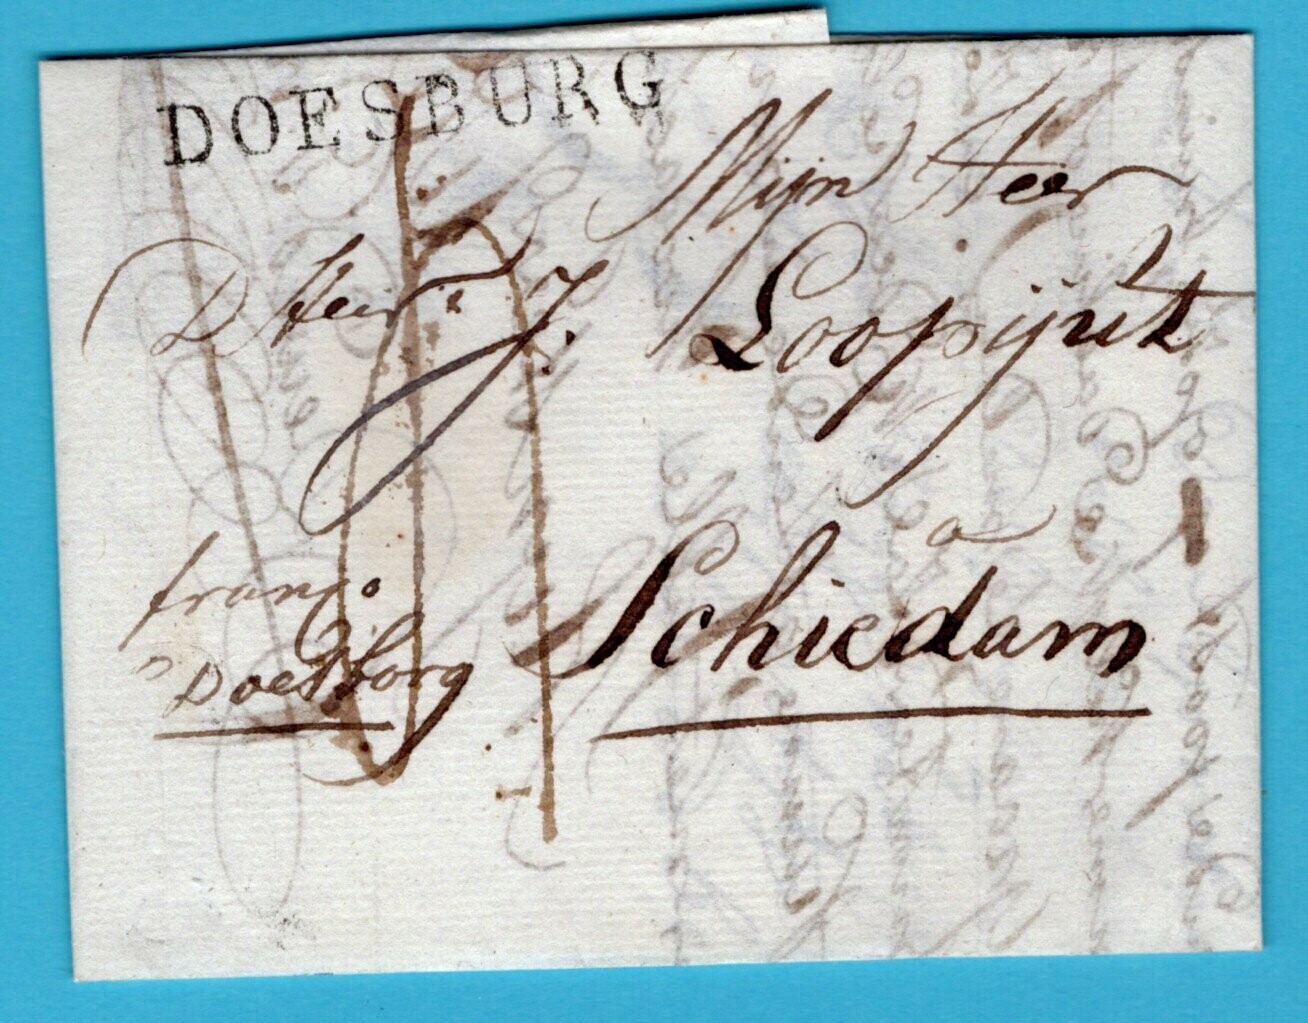 DOESBURG
Mijn Heer
D Heer J. Loopuijt
a
Schiedam
franco
Doesborg